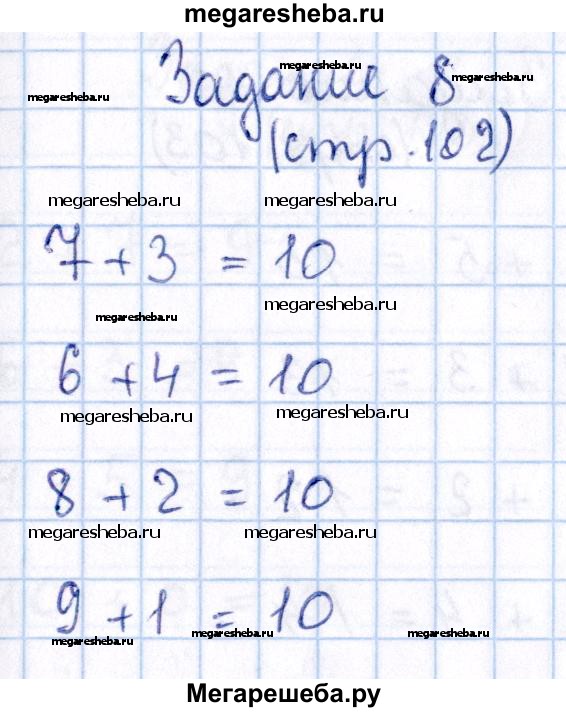 megaresheba.ru
megaresheba.ru
Задание 8
megaresheba.ru
megaresheba.ru
(стр. 102)
megaresheba.ru megaresheba.ru
7 + 3 = 10
megaresheba.ru
megaresheba.ru
6 + 4 = 10
megaresheba.ru megaresheba.ru
8 + 2 = 10
megaresheba.ru megaresheba.ru
9 + 1 = 10
megaresheba.ru megaresheba.ru megaresheba.ru
Мегарешеба.ру